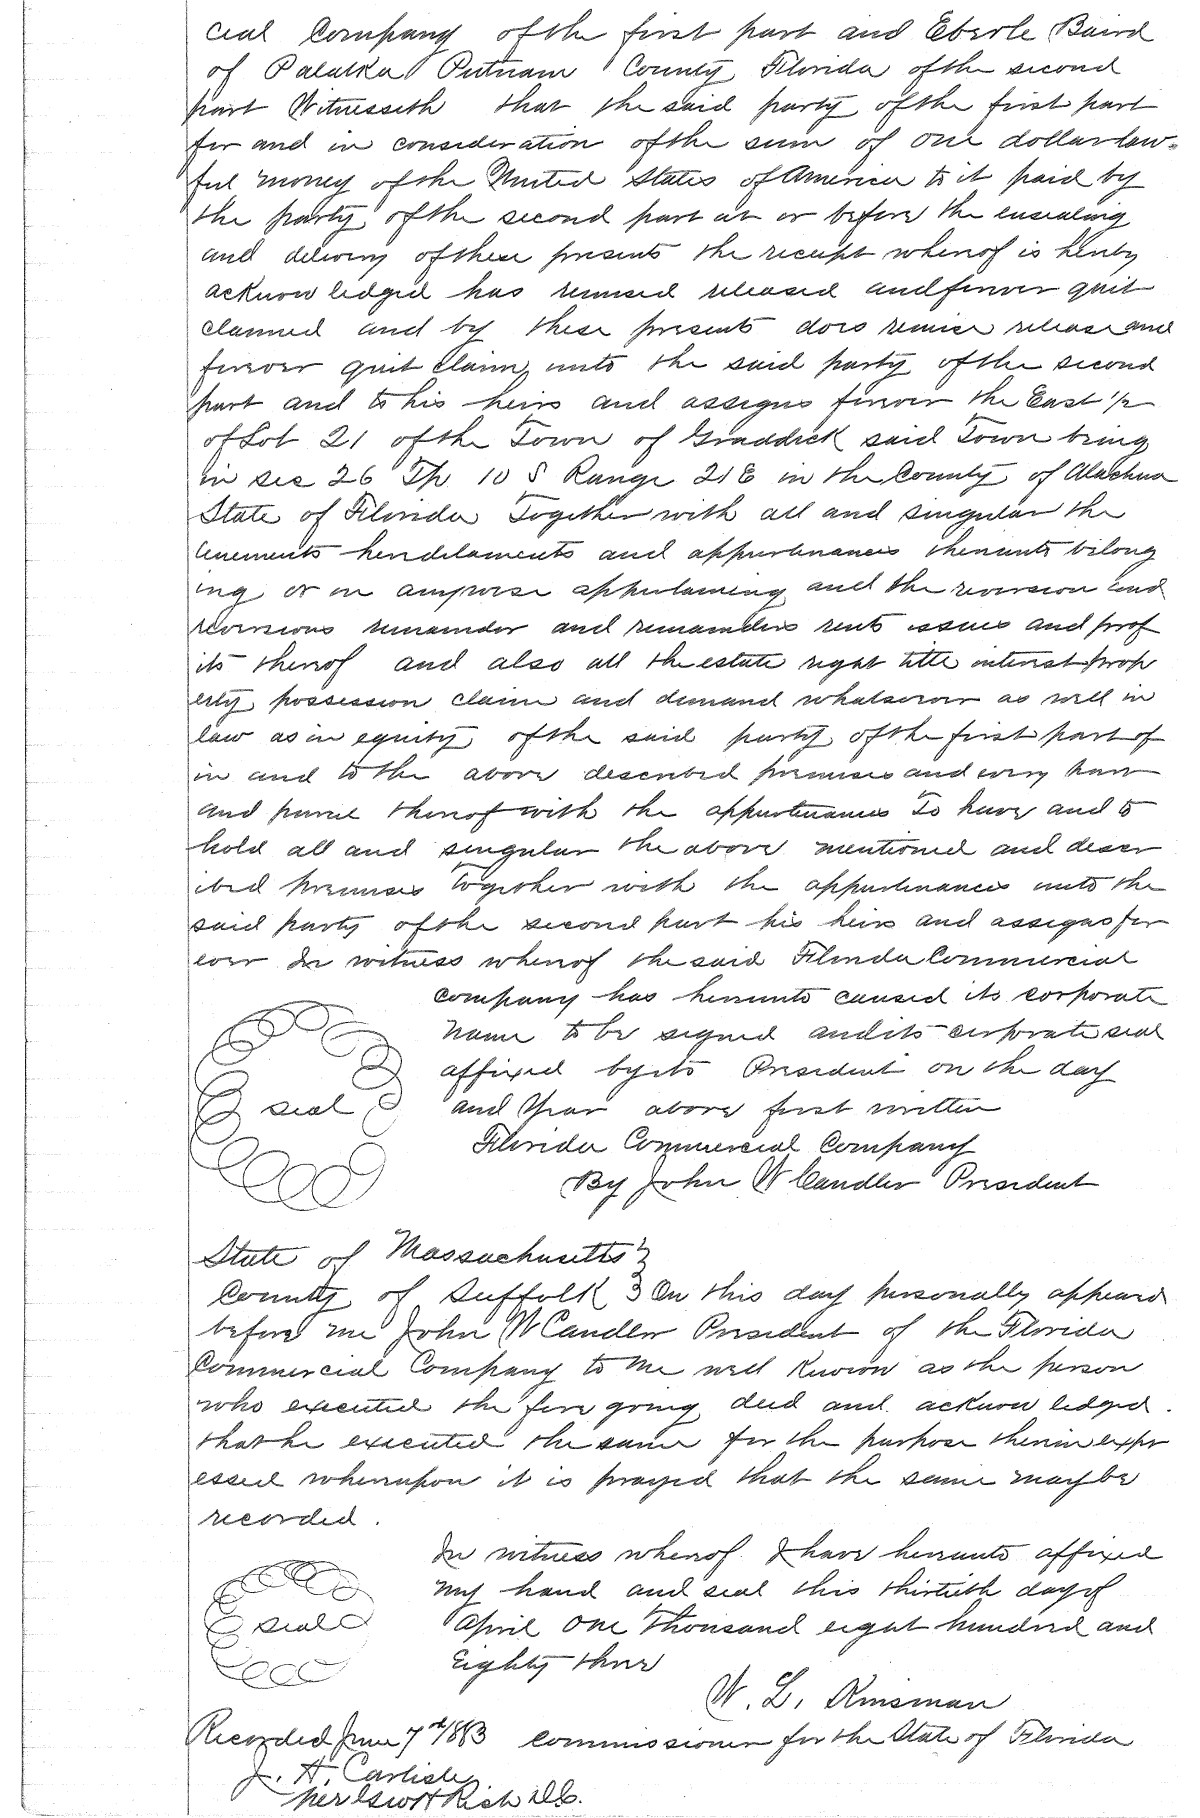 cial Company of the first part and Eberle Baird
of Palatka Putnam County Florida of the second
part Witnesseth that the said party of the first part
for and in consideration of the sum of one dollar law-
ful money of the United States of America to it paid by
the party of the second part at or before the ensealing
and delivery of these presents the receipt whereof is hereby
acknowledged has remised released and forever quit
claimed and by these presents does remise release and
forever quit claim unto the said party of the second
part and to his heirs and assigns forever the East 1/2
of Lot 21 of the Town of Graddick said Town being
in sec 26 Tp 10 S Range 21 E in the County of Alachua
State of Florida Together with all and singular the
tenements hereditaments and appurtenances thereunto belong
ing or in anywise appertaining and the reversion and
reversions remainder and remainders rents issues and prof
its thereof and also all the estate right title interest prop
erty possession claim and demand whatsoever as well in
law as in equity of the said party of the first part of
in and to the above described premises and every part
and parcel thereof with the appurtenances To have and to
hold all and singular the above mentioned and descr
ibed premises together with the appurtenances unto the
said party of the second part his heirs and assigns for
ever In witness whereof the said Florida Commercial
Company has hereunto caused its corporate
name to be signed and its corporate seal
affixed by its President on the day
seal and Year above first written
Florida Commercial Company
By John W Candler President
State of Massachusetts }
County of Suffolk } On this day personally appeared
before me John W Candler President of the Florida
Commercial Company to me well known as the person
who executed the fore going deed and acknowledged.
that he executed the same for the purpose therein expr
essed whereupon it is prayed that the same may be
recorded.
In witness whereof I have hereunto affixed
my hand and seal this thirtieth day of
seal April One thousand eight hundred and
Eighty three
W. L. Kinsman
Recorded June 7th 1883 Commissioner for the State of Florida
J. H. Carlisle
per